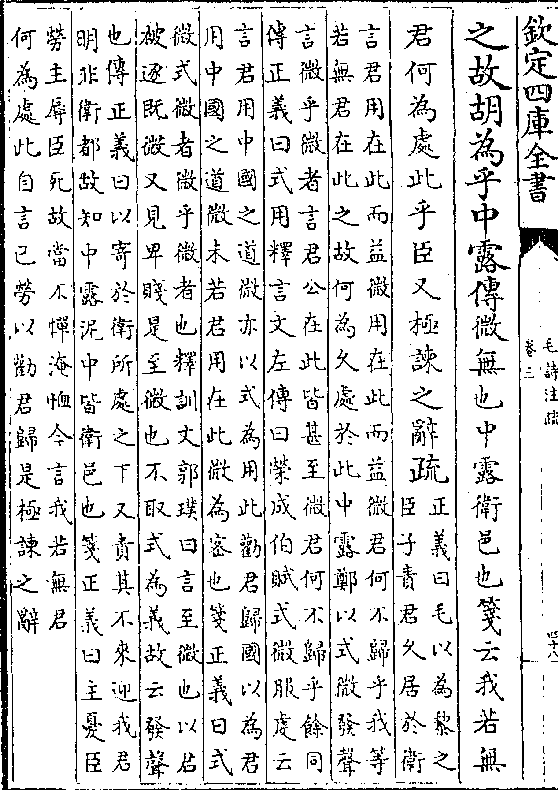 欽定四庫全書
毛詩注疏
卷三
四十八
之故胡為乎中露傳微無也中露衛邑也箋云我若無
君何為處此乎臣又極諫之辭疏
正義曰毛以為黎之
臣子責君久居於衛
言君用在此而益微用在此而益微君何不歸乎我等
若無君在此之故何為久處於此中露鄭以式微發聲
言微乎微者言君公在此皆甚至微君何不歸乎餘同
傳正義曰式用釋言文左傳曰榮成伯賦式微服虔云
言君用中國之道微亦以式為用此勸君歸國以為君
用中國之道微未若君用在此微為宻也箋正義曰式
微式微者微乎微者也釋訓文郭璞曰言至微也以君
被逐既微又見卑賤是至微也不取式為義故云發聲
也傳正義曰以寄於衛所處之下又責其不來迎我君
明非衛都故知中露泥中皆衛邑也箋正義曰主憂臣
勞主辱臣死故當不憚淹恤今言我若無君
何為處此自言已勞以勸君歸是極諫之辭